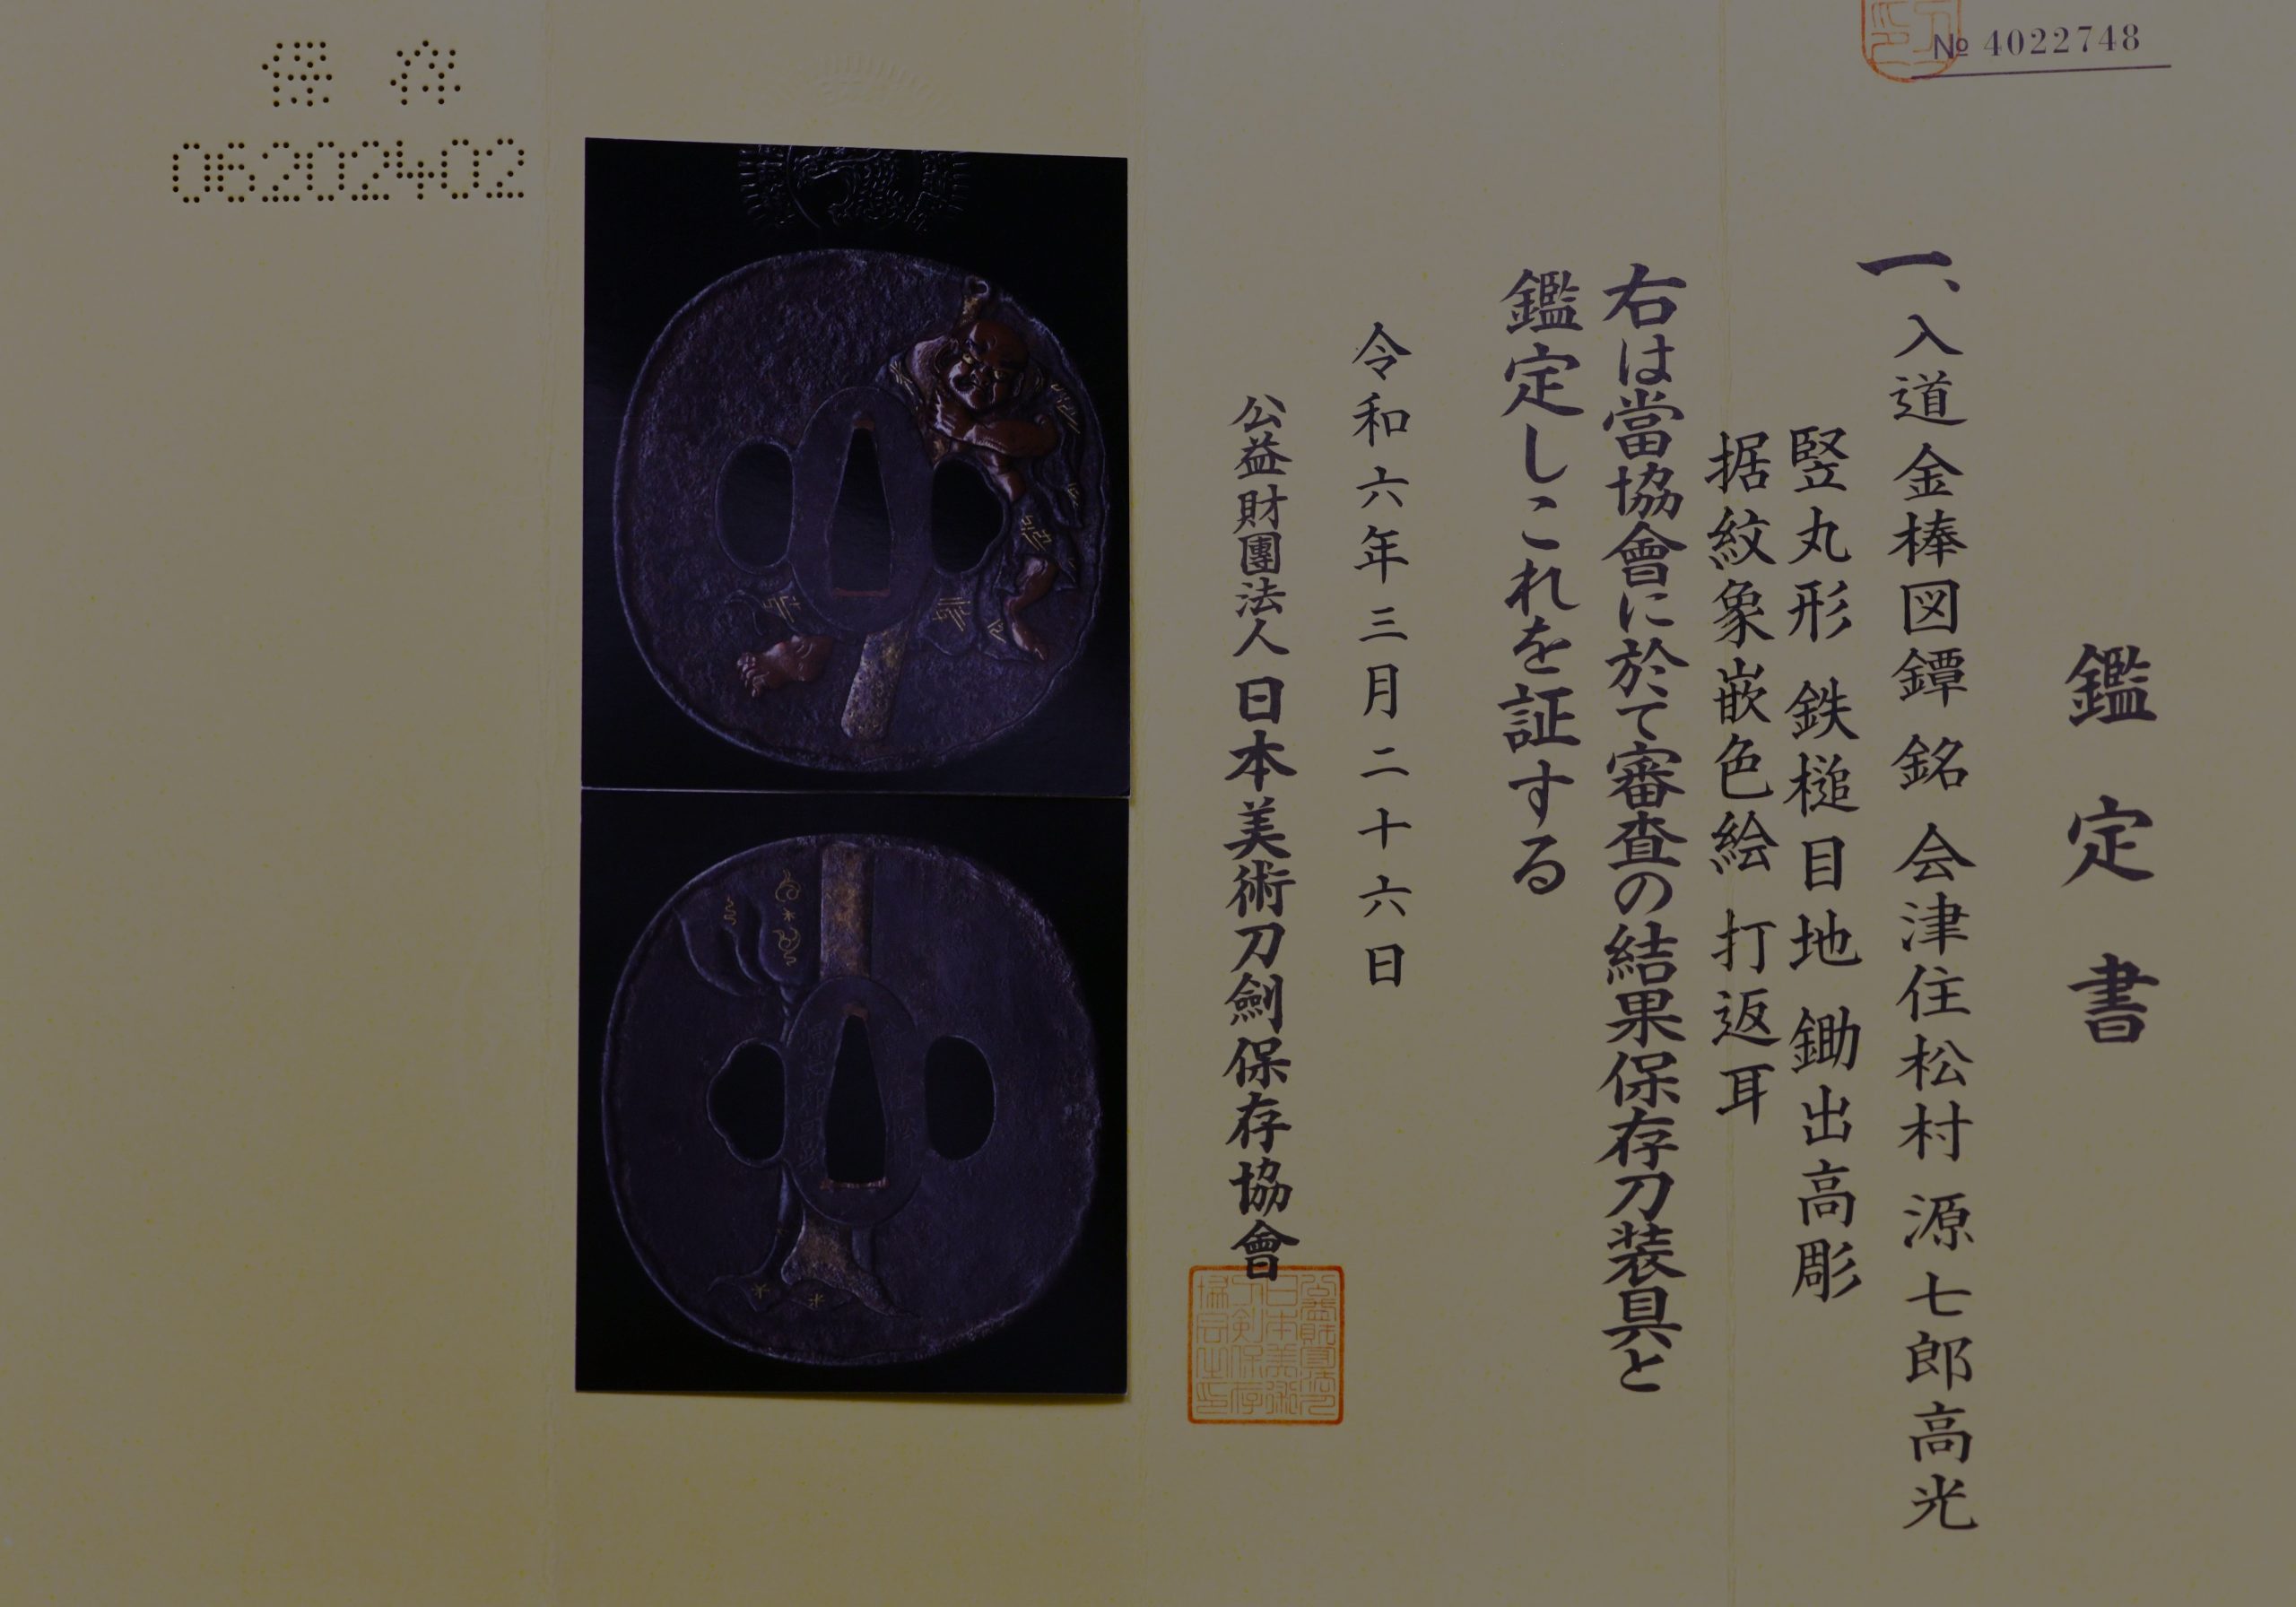 № 4022748
鑑定書
一、入道金棒図鐔 銘 会津住松村 源七郎高光
竪丸形 鉄槌目地 鋤出高彫
据紋象嵌色絵 打返耳
右は當協會に於て審査の結果保存刀装具と
鑑定しこれを証する
令和六年三月二十六日
公益財團法人 日本美術刀劍保存協會
保存
06202402